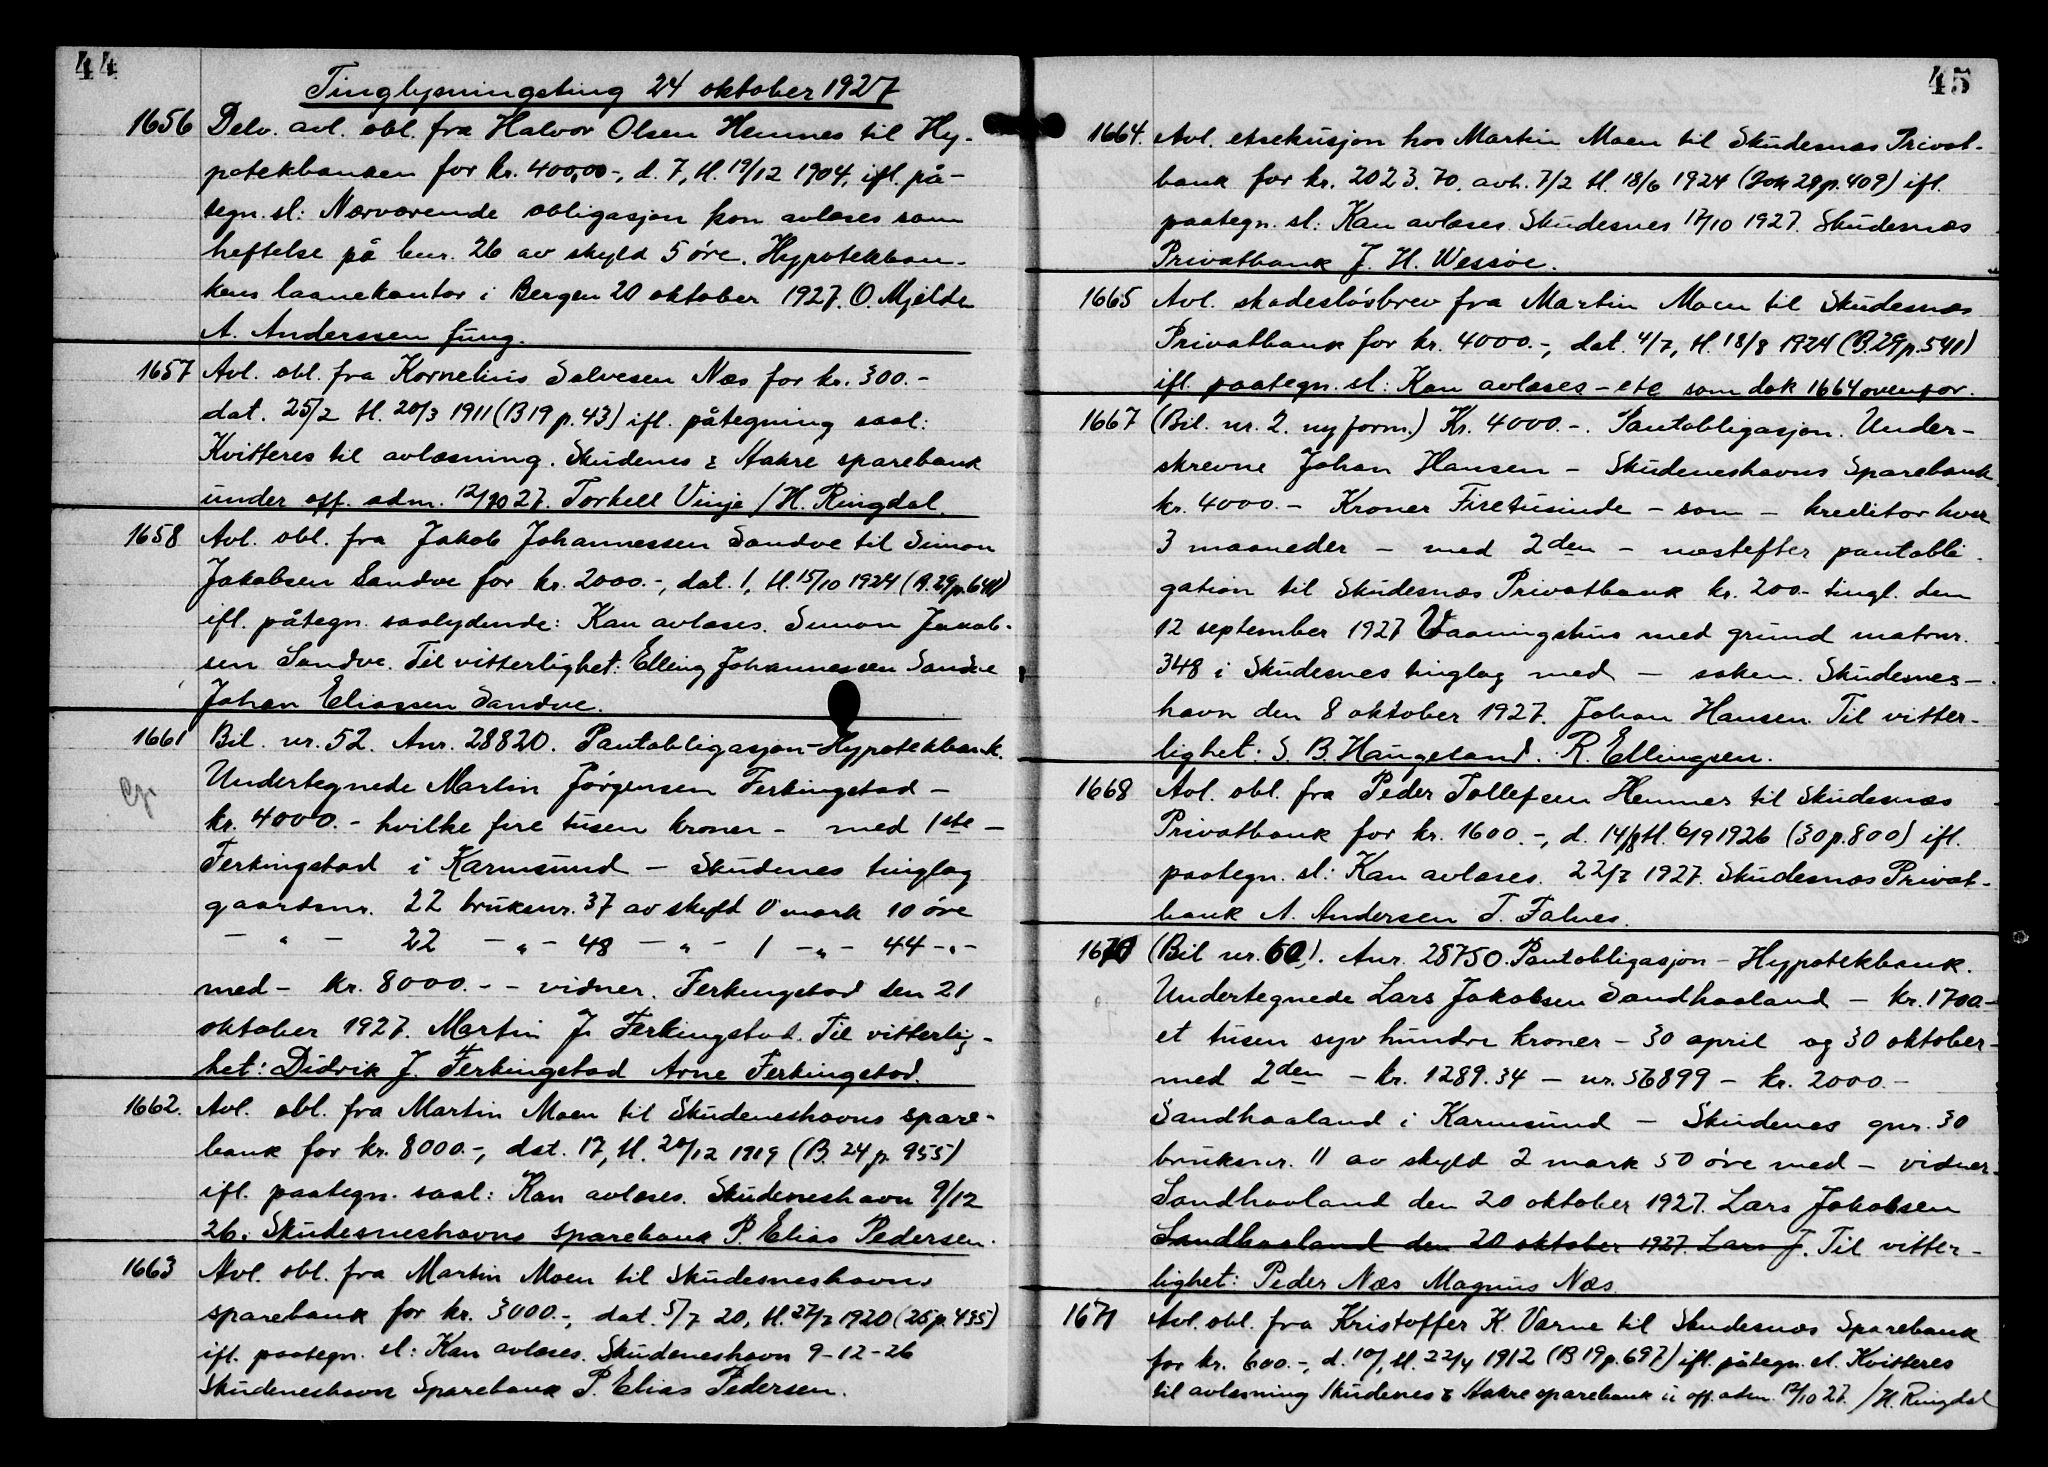 44
Tinglysningsting 24 oktober 1927
1656 Delv. avl. obl. fra Halvor Olsen Hemnes til Hy-
potekbanken for kr. 400,00-, d. 7, tl. 19/12 1904, ifl. på-
tegn. sl: Nærværende obligasjon kan avlæses som
heftelse på bnr. 26 av skyld 5 øre. Hypotekban-
kens laanekontor i Bergen 20 oktober 1927. O. Mjelde
A. Anderssen fung.
1657 Avl. obl. fra Kornelius Salvesen Næs for kr. 300.-
dat. 25/2 tl. 20/3 1911 (B 19 p. 43) ifl. påtegning saal:
Kvitteres til avlæsning. Skudenes & Aakre sparebank
under off. adm. 12/10 27. Torkell Vinje / H. Ringdal.
1658 Avl. obl. fra Jakob Johannessen Sandve til Simon
Jakobsen Sandve for kr. 2000.-, dat. 1, tl. 15/10 1924 (B. 29 p. 641)
ifl. påtegn. saalydende: Kan avlæses. Simon Jakob-
sen Sandve. Til vitterlighet: Elling Johannessen Sandve
Johan Eliassen Sandve.
1661 Bil. nr. 52. Anr. 28820. Pantobligasjon - Hypotekbank.
Undertegnede Martin Jørgensen Ferkingstad -
kr. 4000.- hvilke fire tusen kroner - med 1ste -
Ferkingstad i Karmsund - Skudenes tinglag
gaardsnr. 22 bruksnr. 37 av skyld 0 mark 10 øre
- " - 22 - " - 48 - " - 1 - " - 44 - " -
med - kr. 8000.- - vidner. Ferkingstad den 21
oktober 1927. Martin J. Ferkingstad. Til vitterlig-
het: Didrik J. Ferkingstad Arne Ferkingstad.
1662. Avl. obl. fra Martin Moen til Skudeneshavns spare-
bank for kr. 8000.-, dat. 17, tl. 20/12 1919 (B. 24 p. 955)
ifl. paategn. saal: Kan avlæses. Skudeneshavn 9/12
26. Skudesneshavns sparebank P. Elias Pedersen.
1663 Avl. obl. fra Martin Moen til Skudesneshavns
sparebank for kr. 3000.-, dat. 5/7 20, tl. 27/7 1920 (25 p. 435)
ifl. paategn. sl: Kan avlæses. Skudeneshavn 9-12-26
Skudeneshavn Sparebank P. Elias Pedersen.
45
1664. Avl. etsekusjon hos Martin Moen til Skudesnæs Privat-
bank for kr. 2023.70. avh. 7/2 tl. 18/6 1924 (Bok 29 p. 409) ifl.
paategn. sl: Kan avlæses. Skudesnes 17/10 1927. Skudesnæs
Privatbank J. H. Wessøe.
1665 Avl. skadesløsbrev fra Martin Moen til Skudesnæs
Privatbank for kr. 4000.-, dat. 4/7, tl. 18/8 1924 (B. 29 p. 541)
ifl. paategn. sl: Kan avlæses - etc som dok 1664 ovenfor.
1667 (Bil. nr. 2. ny form.) Kr. 4000.-. Pantobligasjon. Under-
skrevne Johan Hansen - Skudeneshavns Sparebank
kr. 4000.- Kroner Firetusinde - som - kreditor hver
3 maaneder - med 2den - næstefter pantobli-
gation til Skudesnæs Privatbank kr. 200.- tingl. den
12 september 1927 Vaaningshus med grund matrnr.
348 i Skudesnes tinglag med - saken. Skudesnes-
havn den 8 oktober 1927. Johan Hansen. Til vitter-
lighet: S. B. Haugeland. R. Ellingsen.
1668 Avl. obl. fra Peder Tollefsen Hemnes til Skudesnæs
Privatbank for kr. 1600.-, d. 14/8 tl. 6/9 1926 (30 p. 800) ifl.
paategn. sl: Kan avlæses. 22/7 1927. Skudesnæs Privat-
bank A. Andersen T. Falnes.
1670 (Bil nr. 60). Anr. 28750. Pantobligasjon - Hypotekbank.
Undertegnede Lars Jakobsen Sandhaaland - kr. 1700.-
et tusen syv hundre kroner - 30 april og 30 oktober-
med 2den - kr. 1289.34 - nr. 56899 - kr. 2000.-
Sandhaaland i Karmsund - Skudenes gnr. 30
bruksnr. 11 av skyld 2 mark 50 øre med - vidner.
Sandhaaland den 20 oktober 1927. Lars Jakobsen
Sandhaaland den 20 oktober 1927. Lars J. Til vitter-
lighet: Peder Næs Magnus Næs.
1671 Avl. obl. fra Kristoffer K. Varne til Skudesnæs Sparebank
for kr. 600.-, d. 10/, tl. 22/4 1912 (B 19 p. 697) ifl. påtegn. sl. Kvitteres
til avlæsning Skudenes & Aakre sparebank u. off. adm. 12/10 27. / H. Ringdal